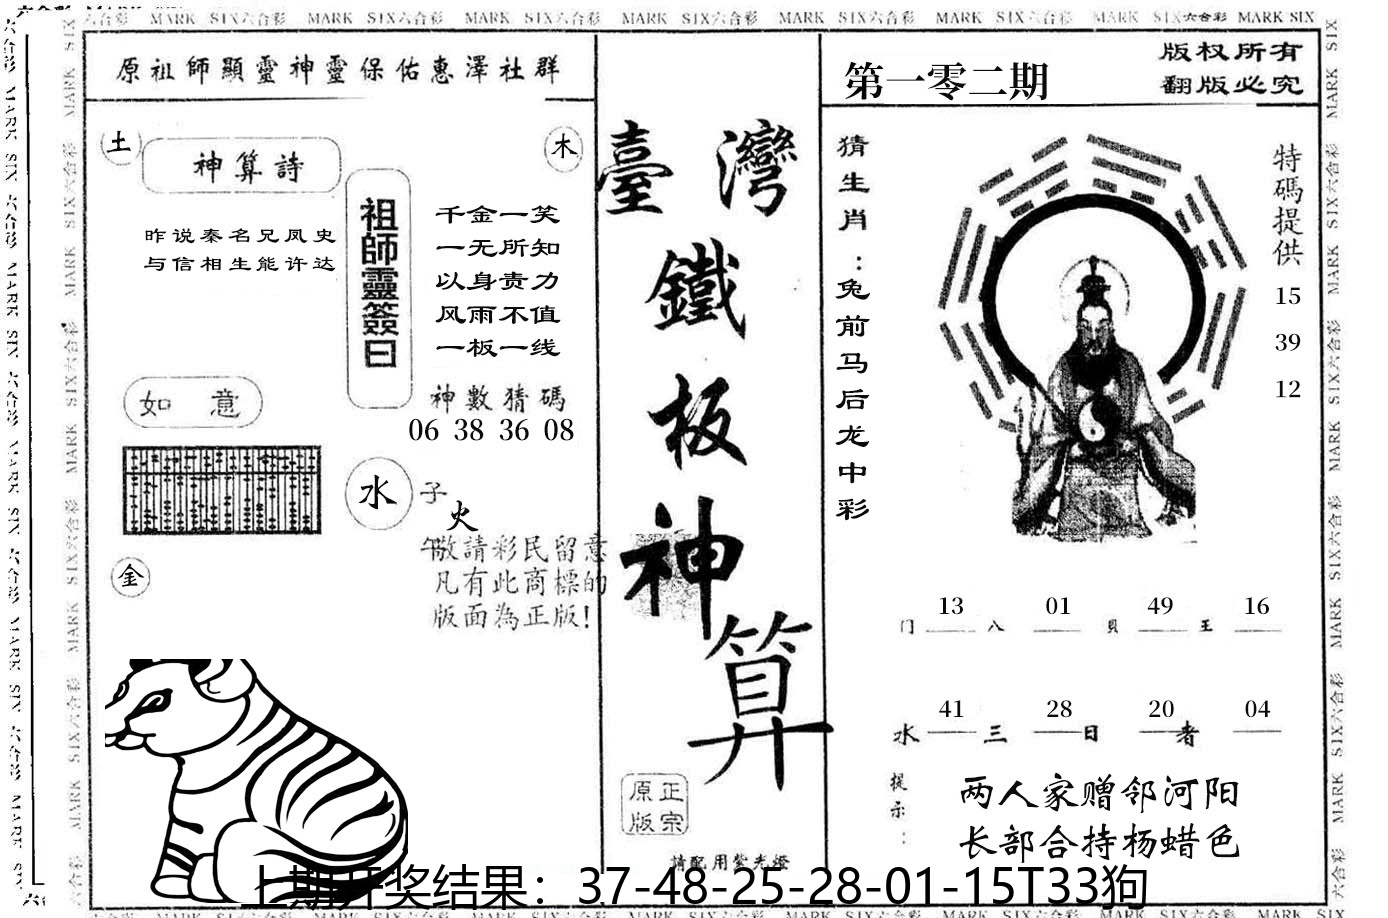 MARK SIX六合彩 MARK SIX六合彩 MARK SIX六合彩 MARK SIX六合彩 MARK SIX六合彩 MARK SIX六合彩 MARK SIX六合彩 MARK SIX
原祖師顯靈神靈保佑惠澤社群
土
木
神算詩
昨说秦名兄凤史
与信相生能许达
祖師靈簽曰
千金一笑
一无所知
以身责力
风雨不值
一板一线
神數猜碼
06 38 36 08
如意
水
子
火
午
金
敬請彩民留意
凡有此商標的
版面為正版!
臺灣
鐵
板
神
算
正宗
原版
請配用紫光燈
第一零二期
版权所有
翻版必究
猜生肖:兔前马后龙中彩
特碼提供
15
39
12
13 01 49 16
门 八 貝 王
41 28 20 04
水 三 日 者
提示:
两人家赠邻河阳
长部合持杨蜡色
上期开奖结果：37-48-25-28-01-15T33狗